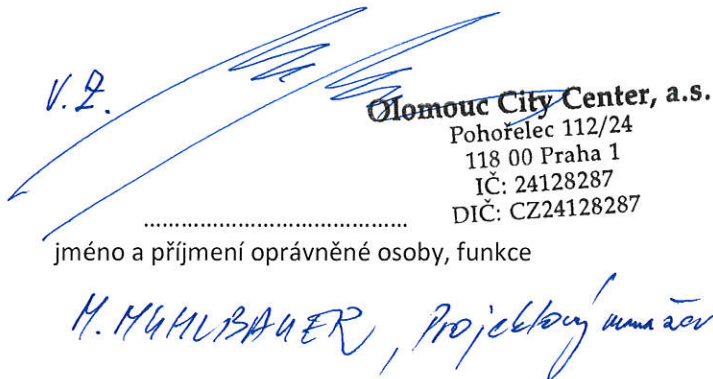 V.Z.
Olomouc City Center, a.s.
Pohořelec 112/24
118 00 Praha 1
IČ: 24128287
DIČ: CZ24128287
........................................
jméno a příjmení oprávněné osoby, funkce
M. MUHLBAUER, Projektový manažer